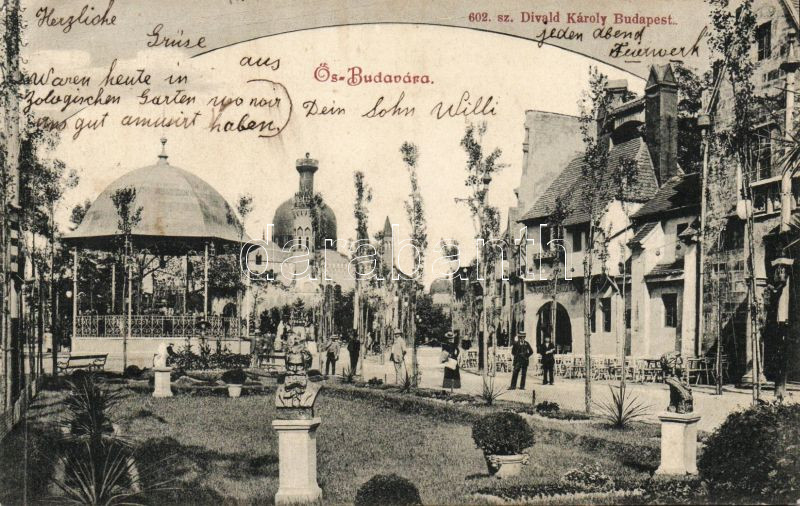 602. sz. Divald Károly Budapest.
Herzliche Grüse aus
jeden abend
Feierwerk
Ős-Budavára.
Waren heute in
Zologischen Garten wo wir
uns gut amusirt haben.
Dein Sohn Willi
databanth